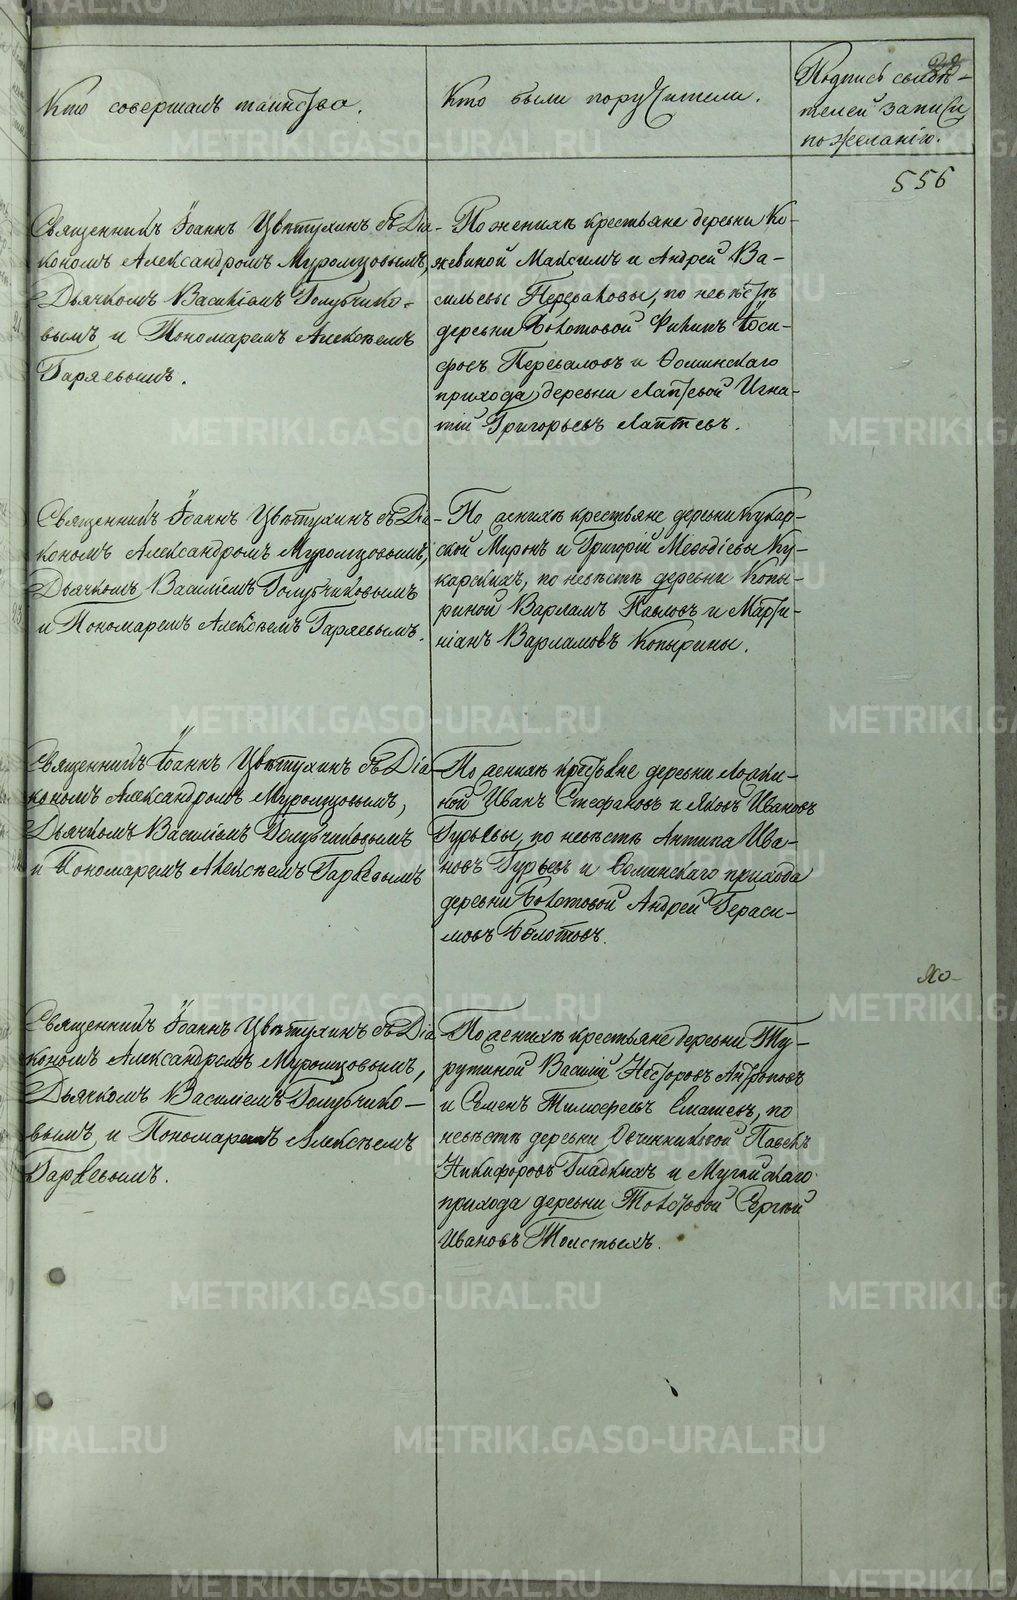 Кто совершалъ таинство.
Кто были поручители.
Подпись свидѣ-
телей записи
по желанію.
556
Священникъ Іоаннъ Цвѣтухинъ съ Діа-
кономъ Александромъ Муромцовымъ,
Дьячкомъ Василіемъ Голубчико-
вымъ и Пономаремъ Алексѣемъ
Гаряевымъ.
По женихѣ крестьяне деревни Ко-
жевиной Максимъ и Андрей Ва-
сильевы Переваловы, по невѣстѣ
деревни Болотовой Филипъ Іоси-
фовъ Переваловъ и Фоминскаго
прихода деревни Лаптевой Игна-
тій Григорьевъ Лаптевъ.
Священникъ Іоаннъ Цвѣтухинъ съ Діа-
кономъ Александромъ Муромцовымъ,
Дьячкомъ Василіемъ Голубчиковымъ
и Пономаремъ Алексѣемъ Гаряевымъ.
По женихѣ крестьяне деревни Кукар-
ской Миронъ и Григорій Меѳодіевы Ку-
карскихъ, по невѣстѣ деревни Копы-
риной Варламъ Павловъ и Марти-
ніанъ Варламовъ Копырины.
Священникъ Іоаннъ Цвѣтухинъ съ Діа-
кономъ Александромъ Муромцовымъ,
Дьячкомъ Василіемъ Голубчиковымъ
и Пономаремъ Алексѣемъ Гаряевымъ
По женихѣ крестьяне деревни
ной Иванъ Стефановъ и Яковъ Ивановъ
Гурьевы, по невѣстѣ Антипа Ива-
новъ Гурьевъ и Фоминскаго прихода
деревни Болотовой Андрей Гераси-
мовъ Болотовъ.
Священникъ Іоаннъ Цвѣтухинъ съ Діа
кономъ Александромъ Муромцовымъ,
Дьячкомъ Василіемъ Голубчико-
вымъ, и Пономаремъ Алексѣемъ
Гаряевымъ.
По женихѣ крестьяне деревни Ту-
рутиной Василій Несторовъ Антроповъ
и Семенъ Тимофеевъ Емашевъ, по
невѣстѣ деревни Овчинниковой Павелъ
Никифоровъ Гладкихъ и Мугайскаго
прихода деревни Толстовой Сергѣй
Ивановъ Толстыхъ.
METRIKI.GASO-URAL.RU